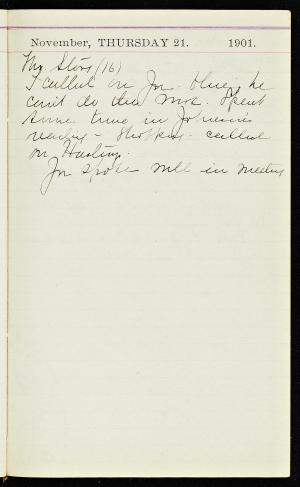 November, THURSDAY 21. 1901.
My Store (16)
I called on Jn. he
can't do the . Spent
some time in
reading - . called
on Hastings.
Jn spoke well in meeting